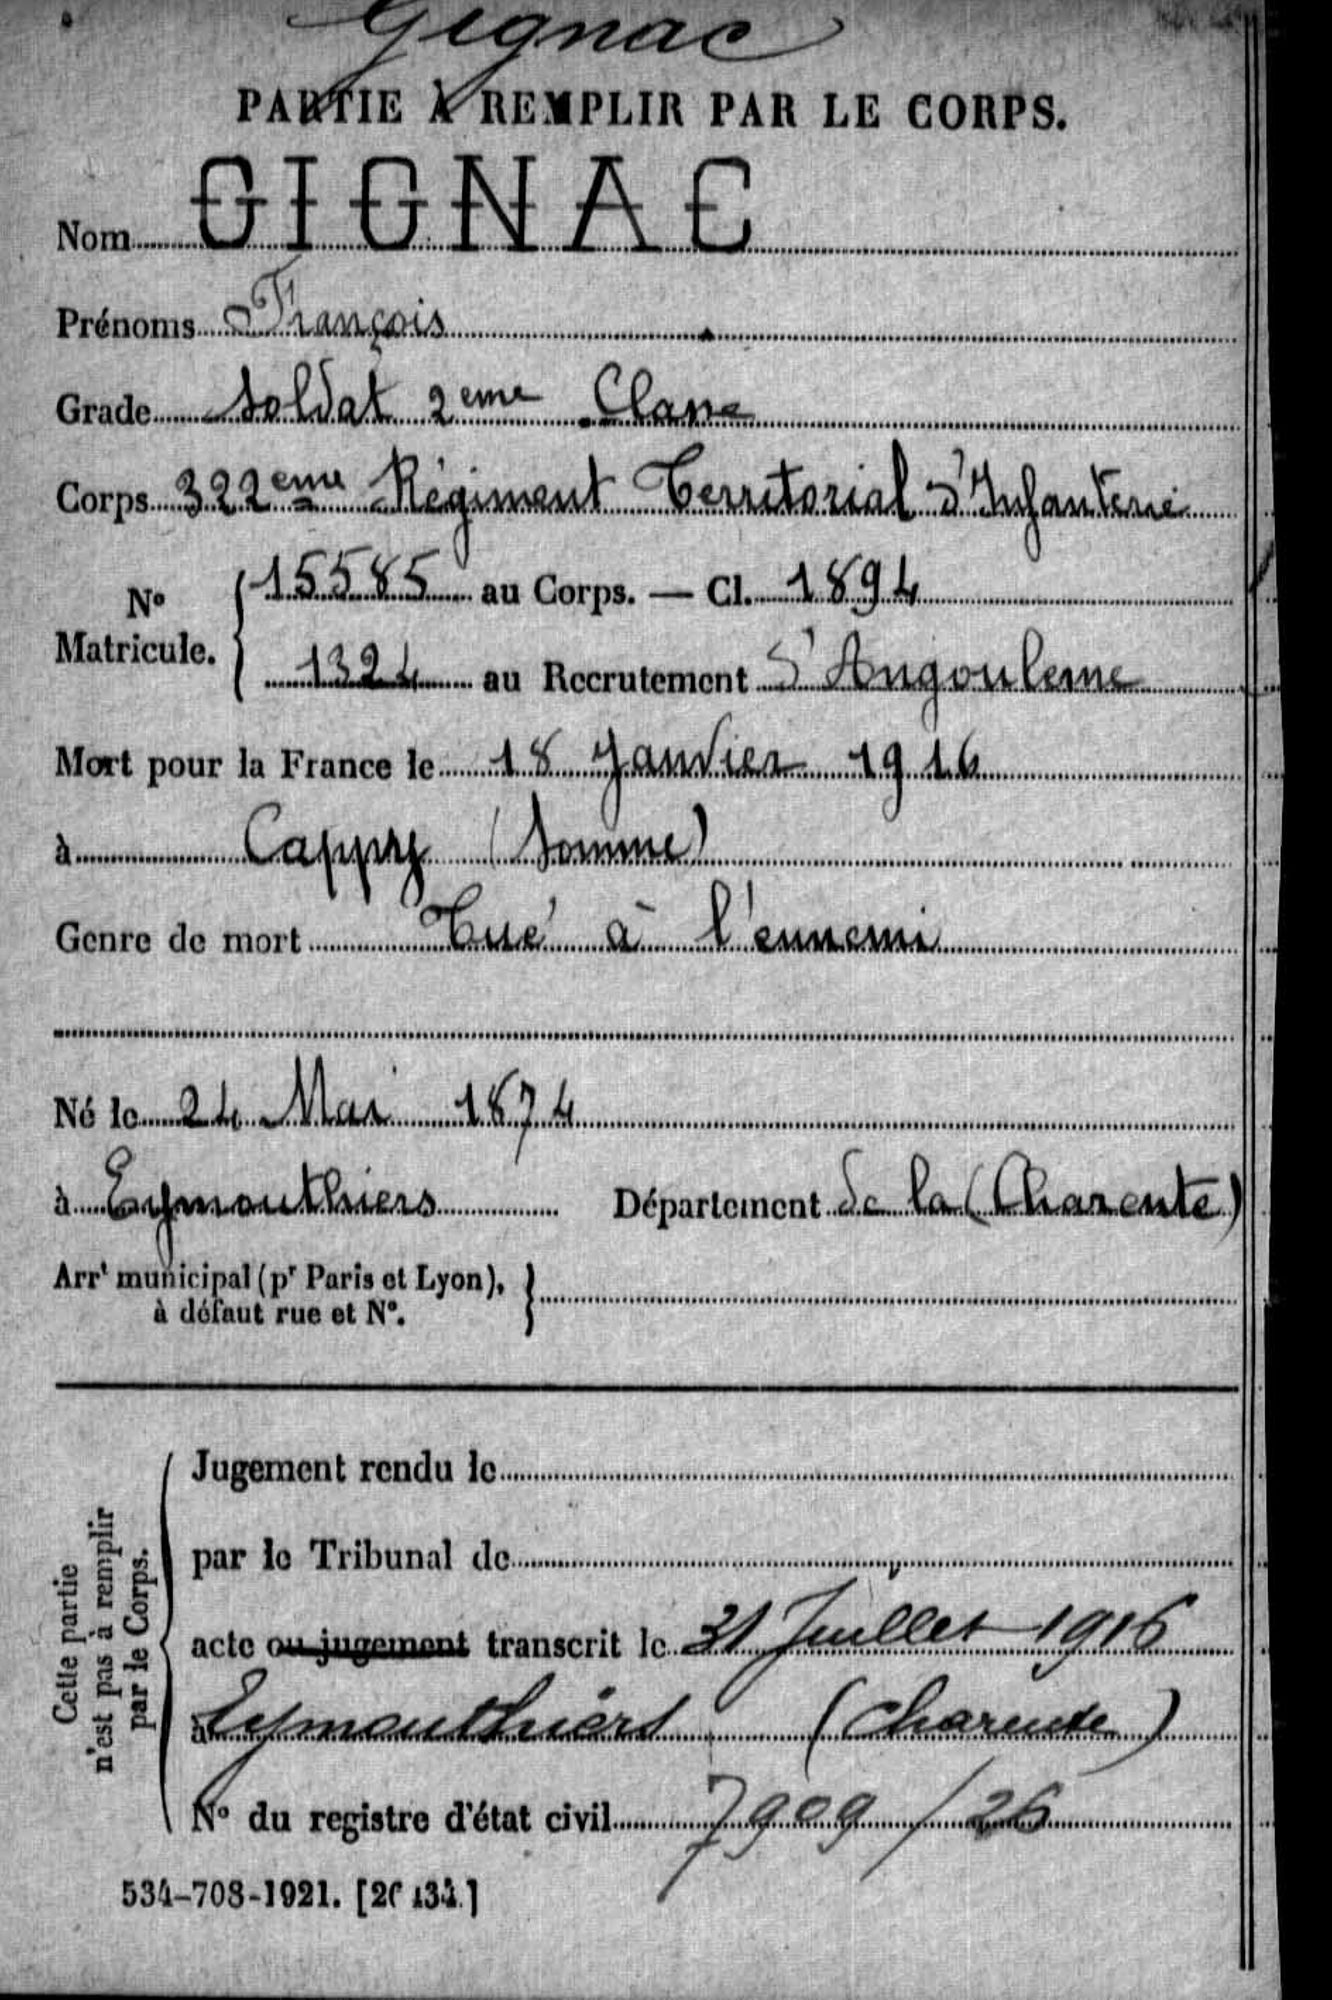 Gignac
PARTIE À REMPLIR PAR LE CORPS.
Nom GIGNAC
Prénoms François
Grade Soldat 2eme Classe
Corps 322eme Régiment Territorial d'Infanterie
No Matricule. { 15585 au Corps. — Cl. 1894
1324 au Recrutement d'Angouleme
Mort pour la France le 18 Janvier 1916
à Cappy (Somme)
Genre de mort Tué à l'ennemi
Né le 24 Mai 1874
à Eymouthiers Département de la (Charente)
Arrt municipal (pr Paris et Lyon), à défaut rue et No. }
Cette partie n'est pas à remplir par le Corps.
Jugement rendu le
par le Tribunal de
acte ou jugement transcrit le 31 Juillet 1916
à Eymouthiers (Charente)
No du registre d'état civil 7909/26
534-708-1921. [26434.]